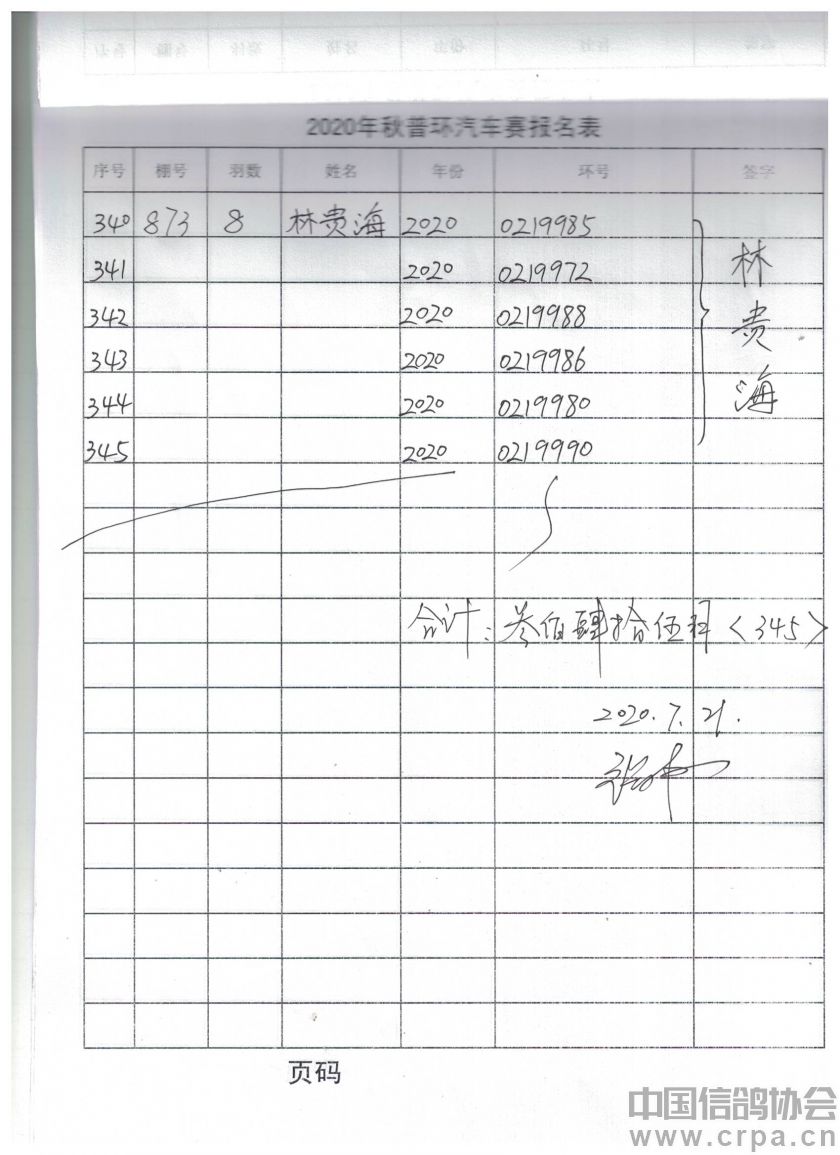 2020年秋普环汽车赛报名表
序号 棚号 羽数 姓名 年份 环号 签字
340 873 8 林贵海 2020 0219985
341 2020 0219972
342 2020 0219988
343 2020 0219986
344 2020 0219980
345 2020 0219990
林贵海
合计：叁佰肆拾伍羽〈345〉
2020.7.21.
页码
中国信鸽协会
www.crpa.cn